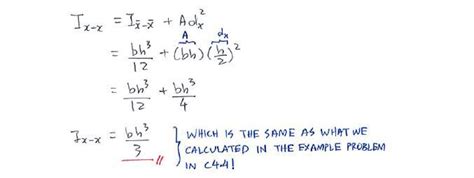 I_{x-x} = I_{x̄-x̄} + A d_x²
A d_x
= bh³/12 + (bh)(h/2)²
= bh³/12 + bh³/4
I_{x-x} = bh³/3 // } WHICH IS THE SAME AS WHAT WE
CALCULATED IN THE EXAMPLE PROBLEM
IN C4.4!